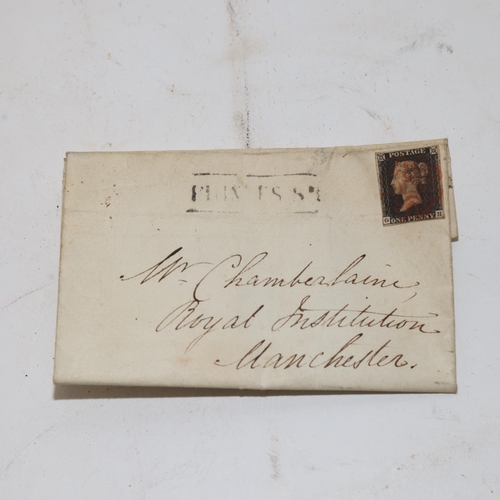 POSTAGE
G H
ONE PENNY
Mr Chamberlaine,
Royal Institution
Manchester.